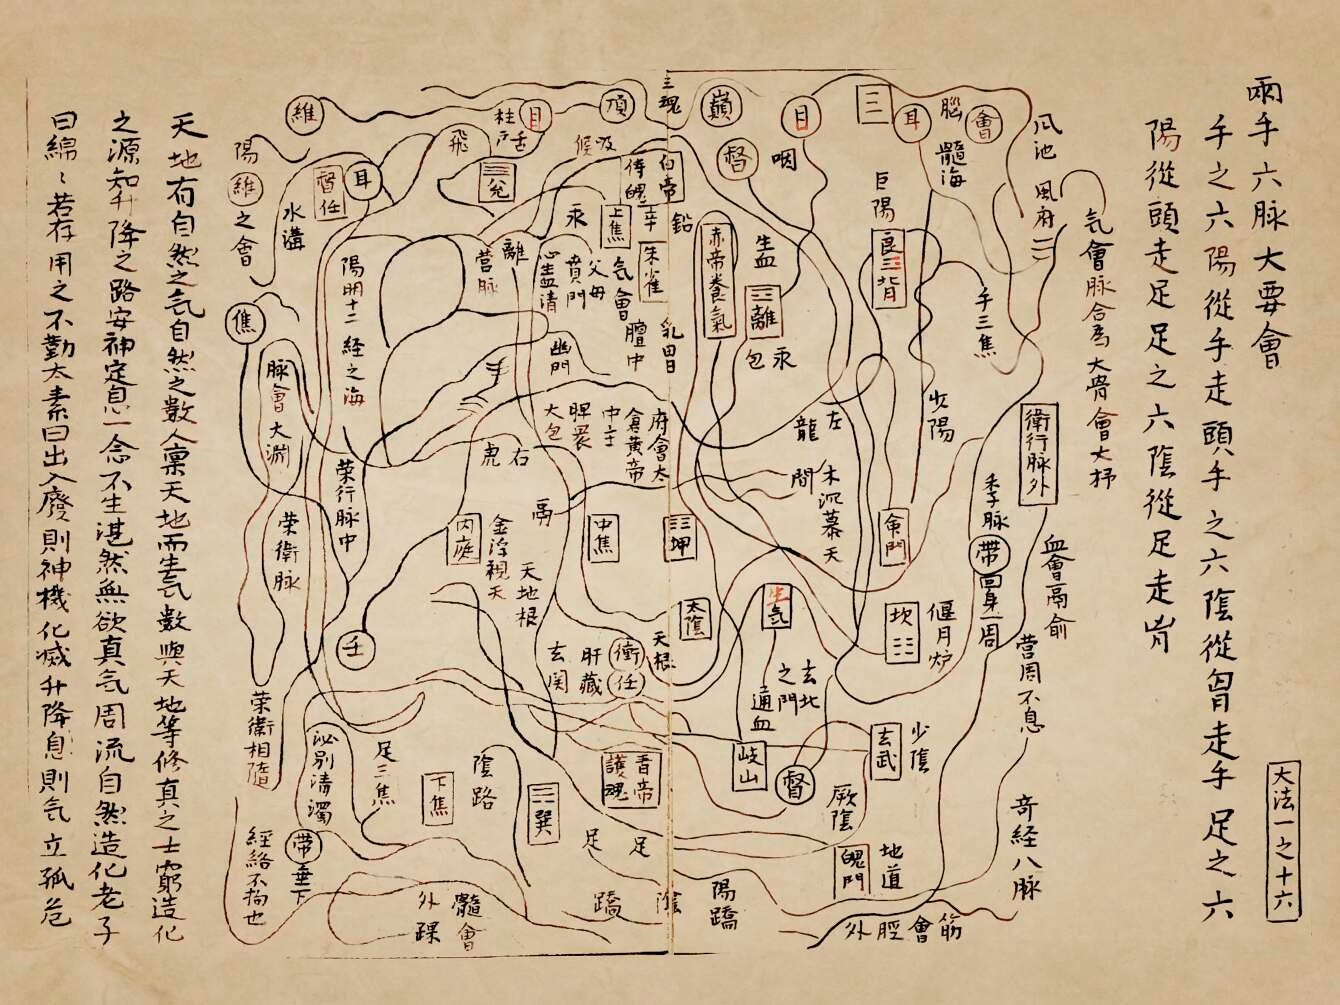 兩手六脉大要會
手之六陽從手走頭手之六陰從胷走手足之六
陽從頭走足足之六陰從足走胷
大法一之十六
气會脉合爲大骨會大杼
風府
風池
會
腦
髓海
耳
三
目
咽
巔
督
三魂
頂
吸候
目
柱
舌
飛
維
陽維之會
水溝
督任
耳
兌
白帝侍魄
鉛
辛
上焦
汞
朱雀
气會膻中
父母
賁門
心盡清
離
营脉
陽明十二經之海
焦
巨陽
艮背
手三焦
生血
離
汞
包
赤帝養氣
乳
幽門
脉會大淵
少陽
左龍
木沉慕天
間
府會太倉黄帝中主
脾裹大包
右虎
荣行脉中
荣衛脉
衛行脉外
季脉
帶
囬身一周
血會鬲俞
营周不息
命門
坤
中焦
鬲
金浮視天
内庭
天地根
偃月炉
坎
生气
太陰
天根
衝任
肝藏
玄関
壬
玄北之門
通血
荣衛相隨
泌别清濁
足三焦
下焦
陰路
巽
青帝護魂
岐山
督
玄武
少陰
厥陰
奇經八脉
經絡不拘也
帶
垂下
足
足
外踝
髓會
蹻
陰
陽蹻
魄門
地道
外脛會筋
天地有自然之气自然之数人禀天地而生气数與天地等修真之士窮造化
之源知升降之路安神定息一念不生湛然無欲真气周流自然造化老子
曰綿〻若存用之不勤太素曰出入廢則神機化滅升降息則气立孤危